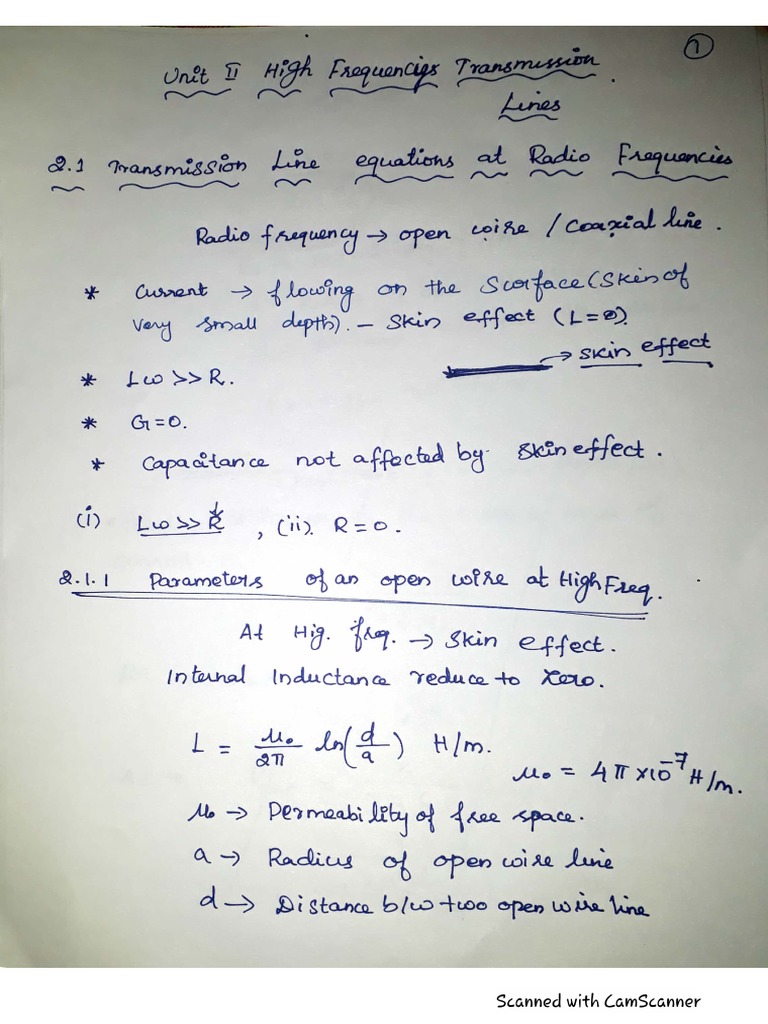 1
Unit II High Frequencies Transmission
Lines
2.1 Transmission Line equations at Radio Frequencies
Radio frequency → open wire / Coaxial line.
* Current → flowing on the Surface (Skin of
very small depth). – Skin effect (L=0).
→ skin effect
* Lω >> R.
* G=0.
* Capacitance not affected by Skin effect.
(i) Lω >> R , (ii). R = 0.
2.1.1 Parameters of an open wire at High Freq.
At Hig. freq. → Skin effect.
Internal Inductance reduce to Zero.
L = μ₀/2π ln(d/a) H/m.
μ₀ = 4π×10⁻⁷ H/m.
μ₀ → Permeability of free space.
a → Radius of open wire line
d → Distance b/w two open wire line
Scanned with CamScanner